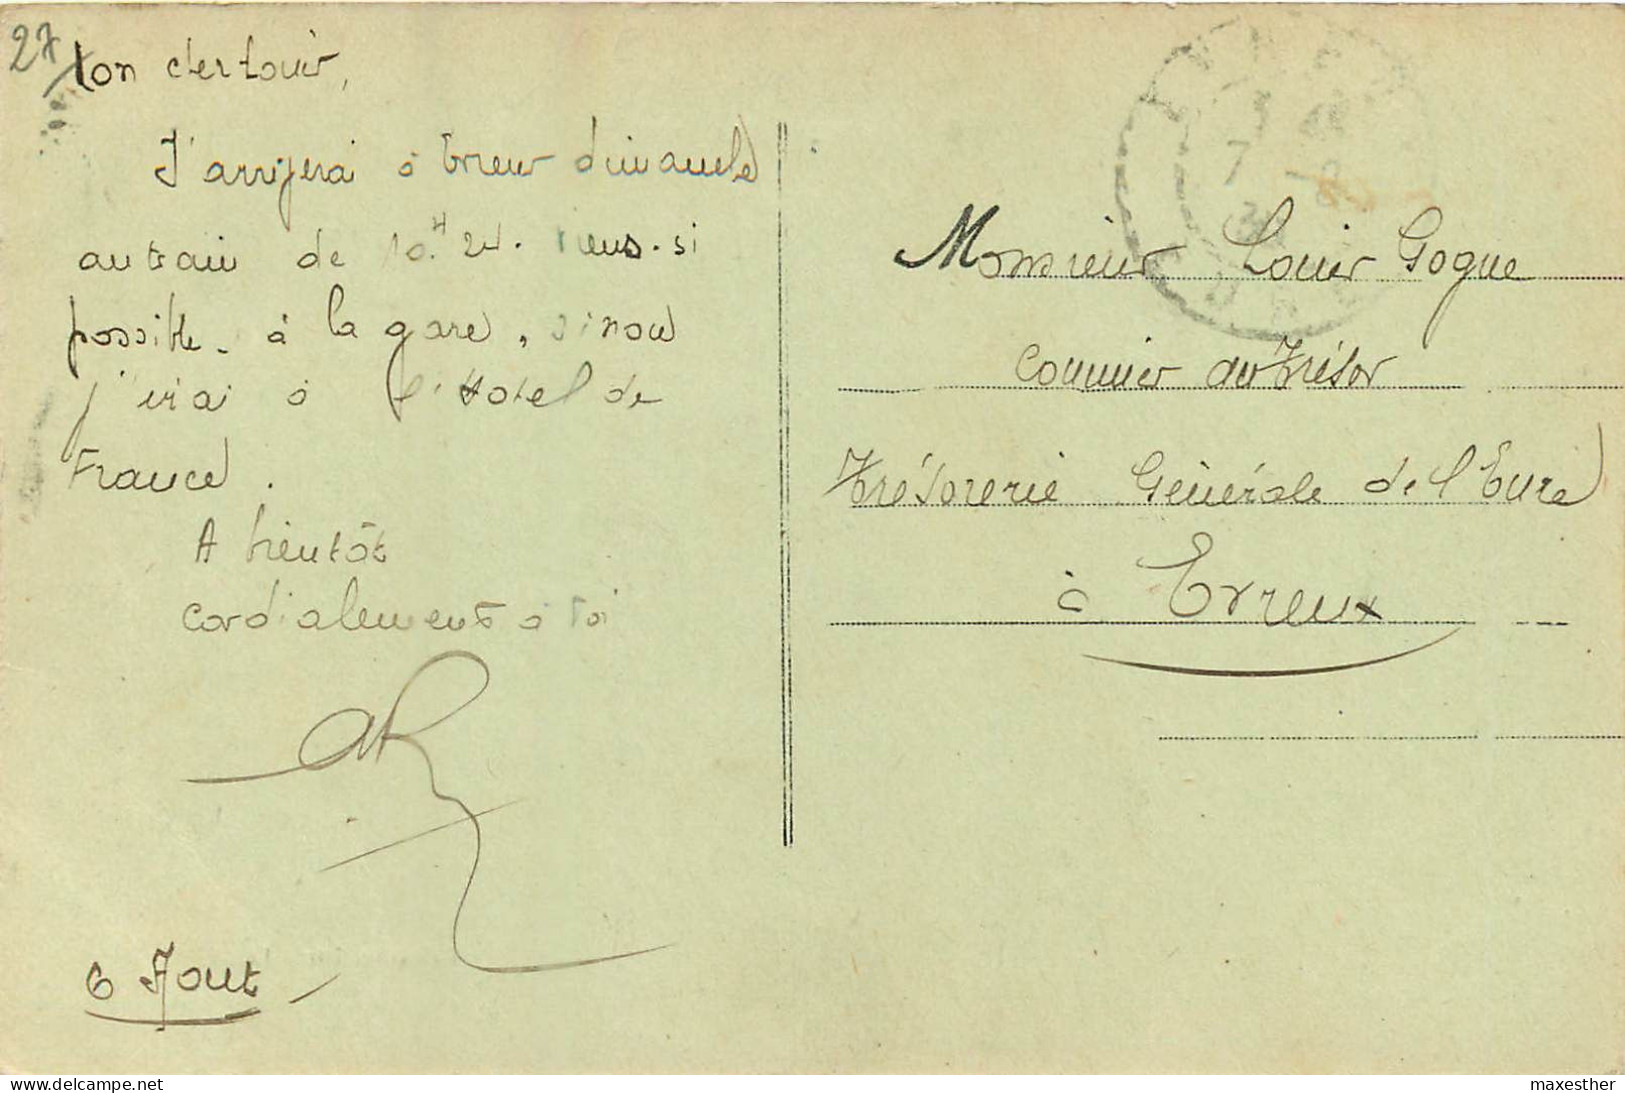 27
Mon cher Louis,
J'arriverai à Evreux dimanche
au train de 10.H 24. Viens. si
possible. à la gare, sinon
j'irai à l'Hotel de
France.
A bientôt
cordialement à toi
6 Aout
Monsieur Louis Gogue
Commis du Trésor
Trésorerie Générale de l'Eure
à Evreux
https://www.delcampe.net
maxesther